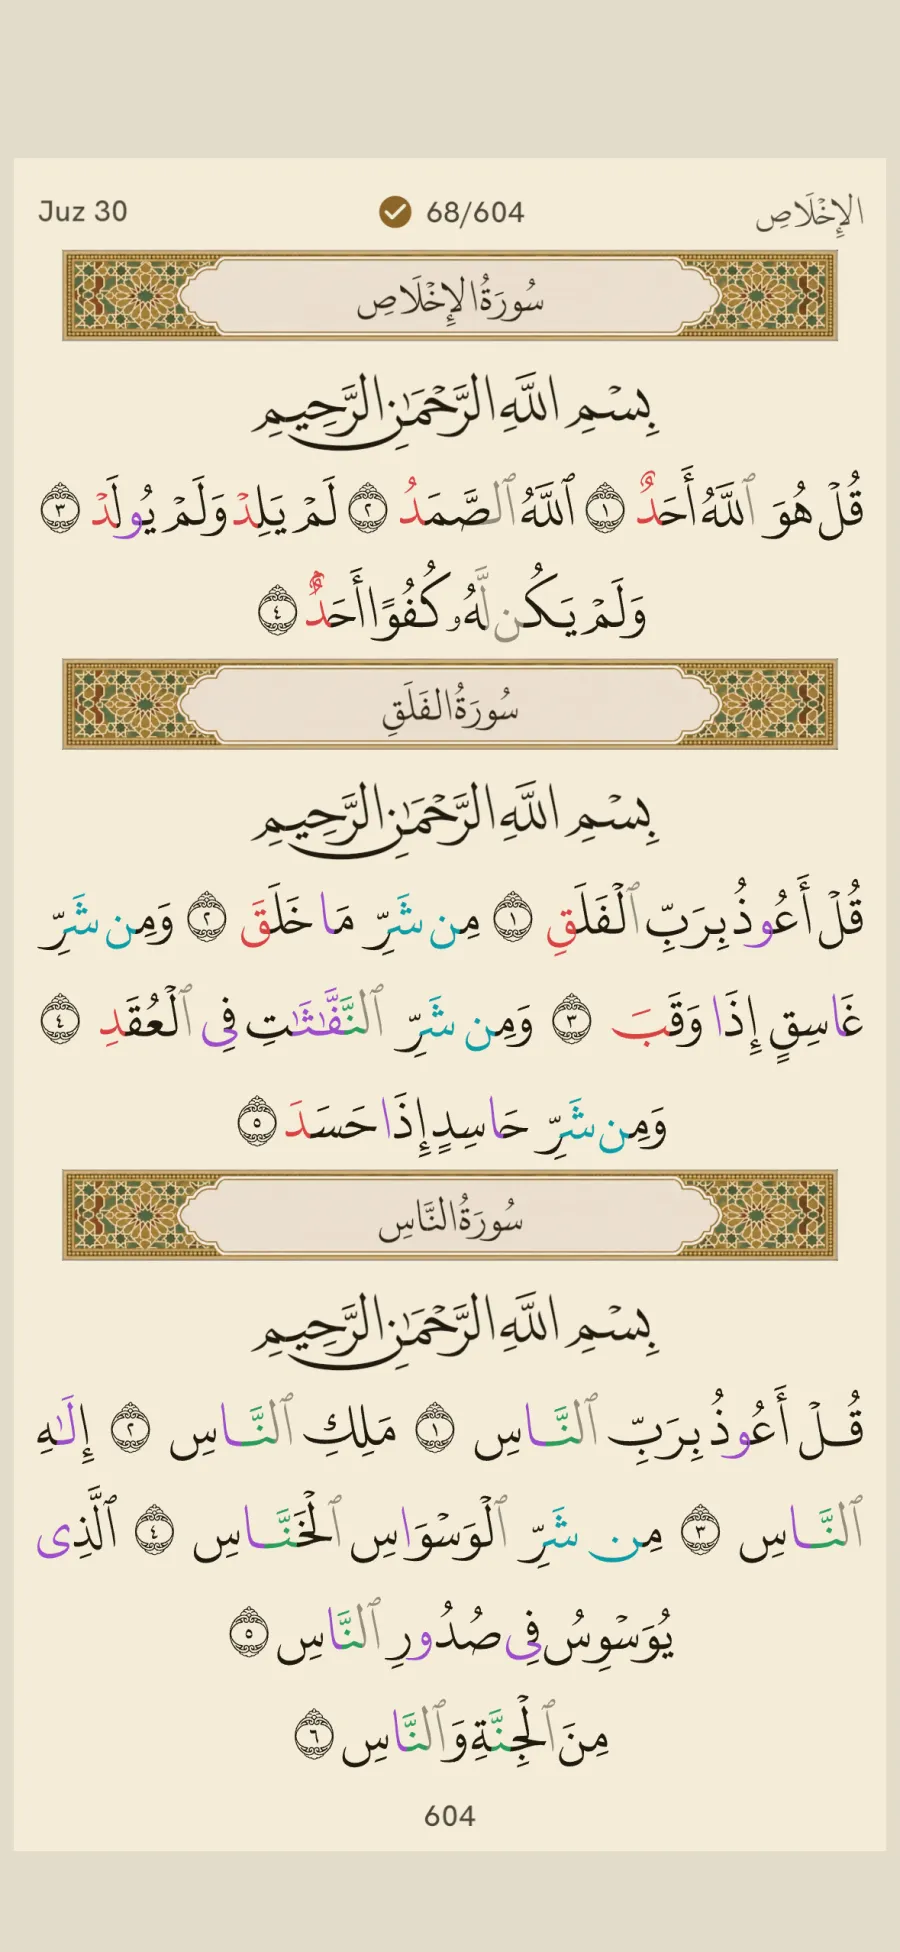 Juz 30
68/604
الإِخۡلَاصِ
سُورَةُ الإِخۡلَاصِ
بِسۡمِ اللَّهِ الرَّحۡمَٰنِ الرَّحِيمِ
قُلۡ هُوَ ٱللَّهُ أَحَدٌ ١ ٱللَّهُ ٱلصَّمَدُ ٢ لَمۡ يَلِدۡ وَلَمۡ يُولَدۡ ٣
وَلَمۡ يَكُن لَّهُۥ كُفُوًا أَحَدٌۢ ٤
سُورَةُ الفَلَقِ
بِسۡمِ اللَّهِ الرَّحۡمَٰنِ الرَّحِيمِ
قُلۡ أَعُوذُ بِرَبِّ ٱلۡفَلَقِ ١ مِن شَرِّ مَا خَلَقَ ٢ وَمِن شَرِّ
غَاسِقٍ إِذَا وَقَبَ ٣ وَمِن شَرِّ ٱلنَّفَّٰثَٰتِ فِى ٱلۡعُقَدِ ٤
وَمِن شَرِّ حَاسِدٍ إِذَا حَسَدَ ٥
سُورَةُ النَّاسِ
بِسۡمِ اللَّهِ الرَّحۡمَٰنِ الرَّحِيمِ
قُلۡ أَعُوذُ بِرَبِّ ٱلنَّاسِ ١ مَلِكِ ٱلنَّاسِ ٢ إِلَٰهِ
ٱلنَّاسِ ٣ مِن شَرِّ ٱلۡوَسۡوَاسِ ٱلۡخَنَّاسِ ٤ ٱلَّذِى
يُوَسۡوِسُ فِى صُدُورِ ٱلنَّاسِ ٥
مِنَ ٱلۡجِنَّةِ وَٱلنَّاسِ ٦
604